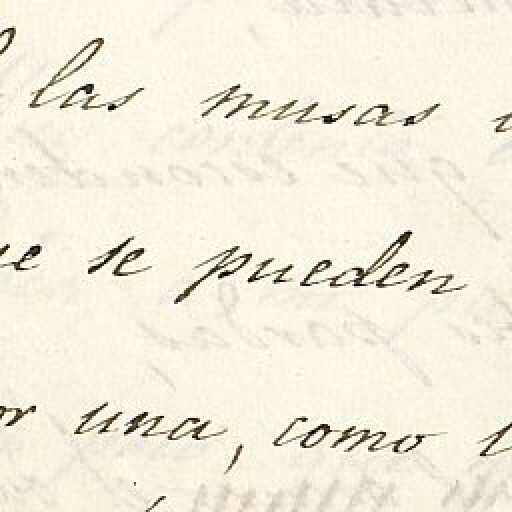 las musas
se pueden
una, como